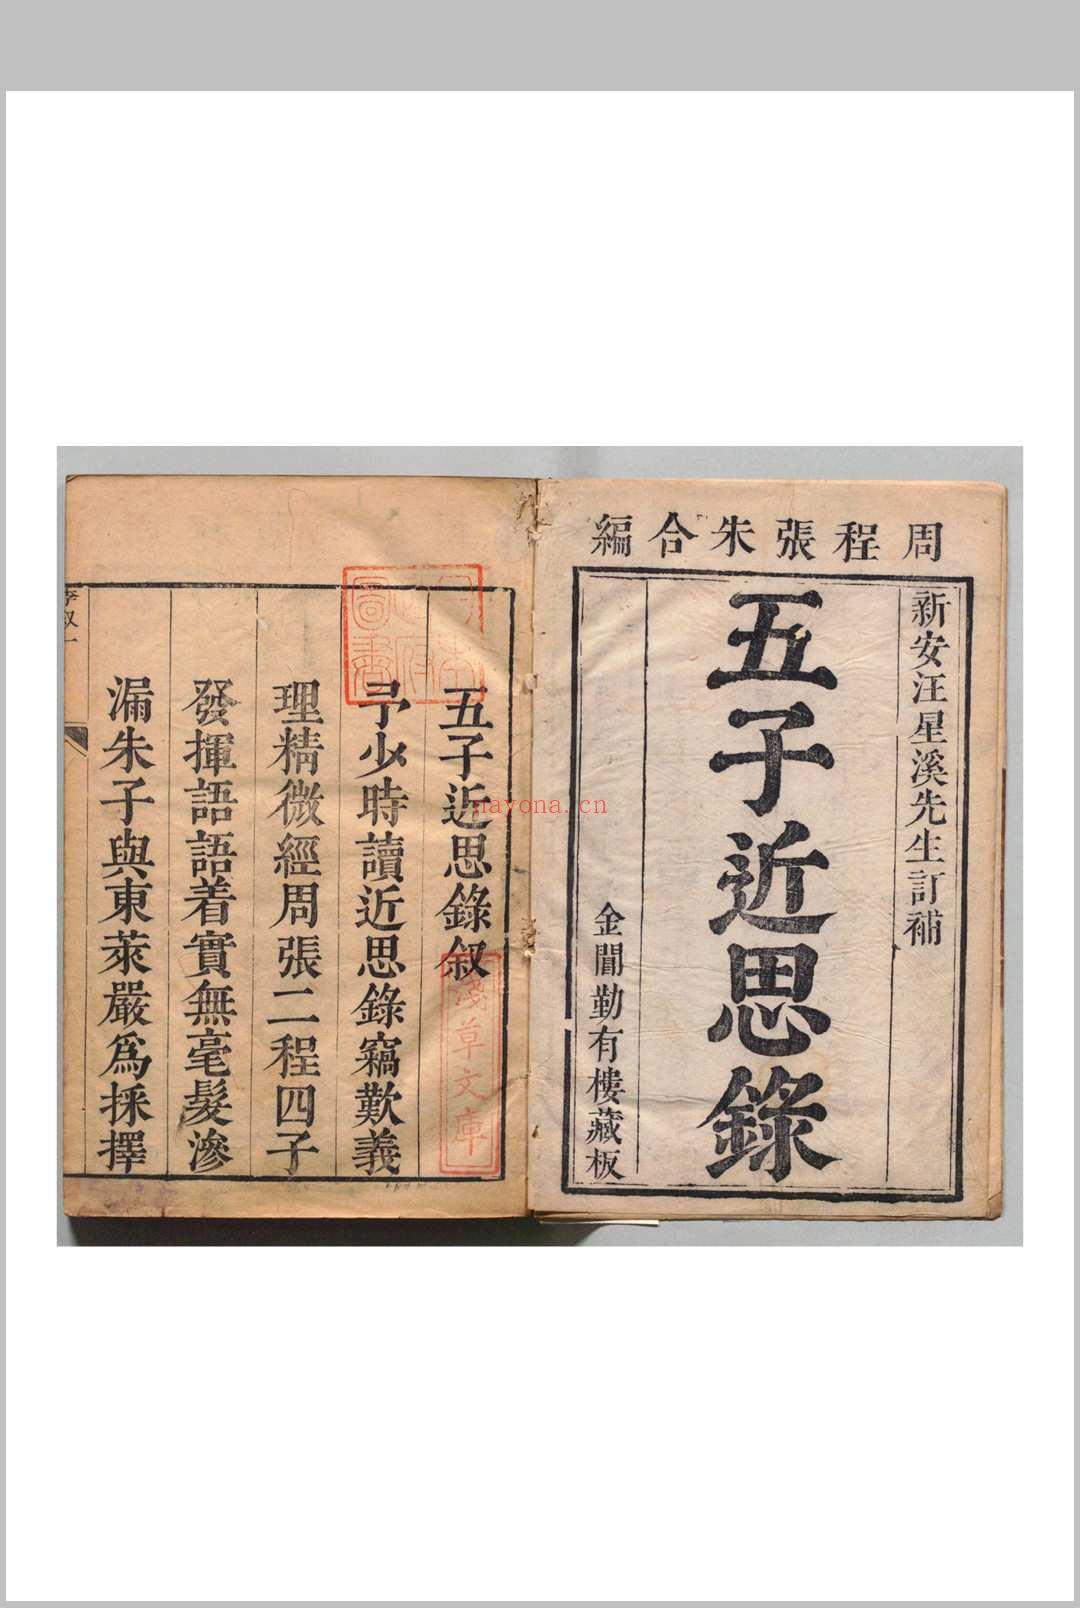 周程張朱合編
新安汪星溪先生訂補
五子近思錄
金閶勤有樓藏板
五子近思錄叙
予少時讀近思錄竊歎義
理精微經周張二程四子
發揮語語着實無毫髮滲
漏朱子與東萊嚴爲採擇
淺草文庫
圖書
nayona.cn